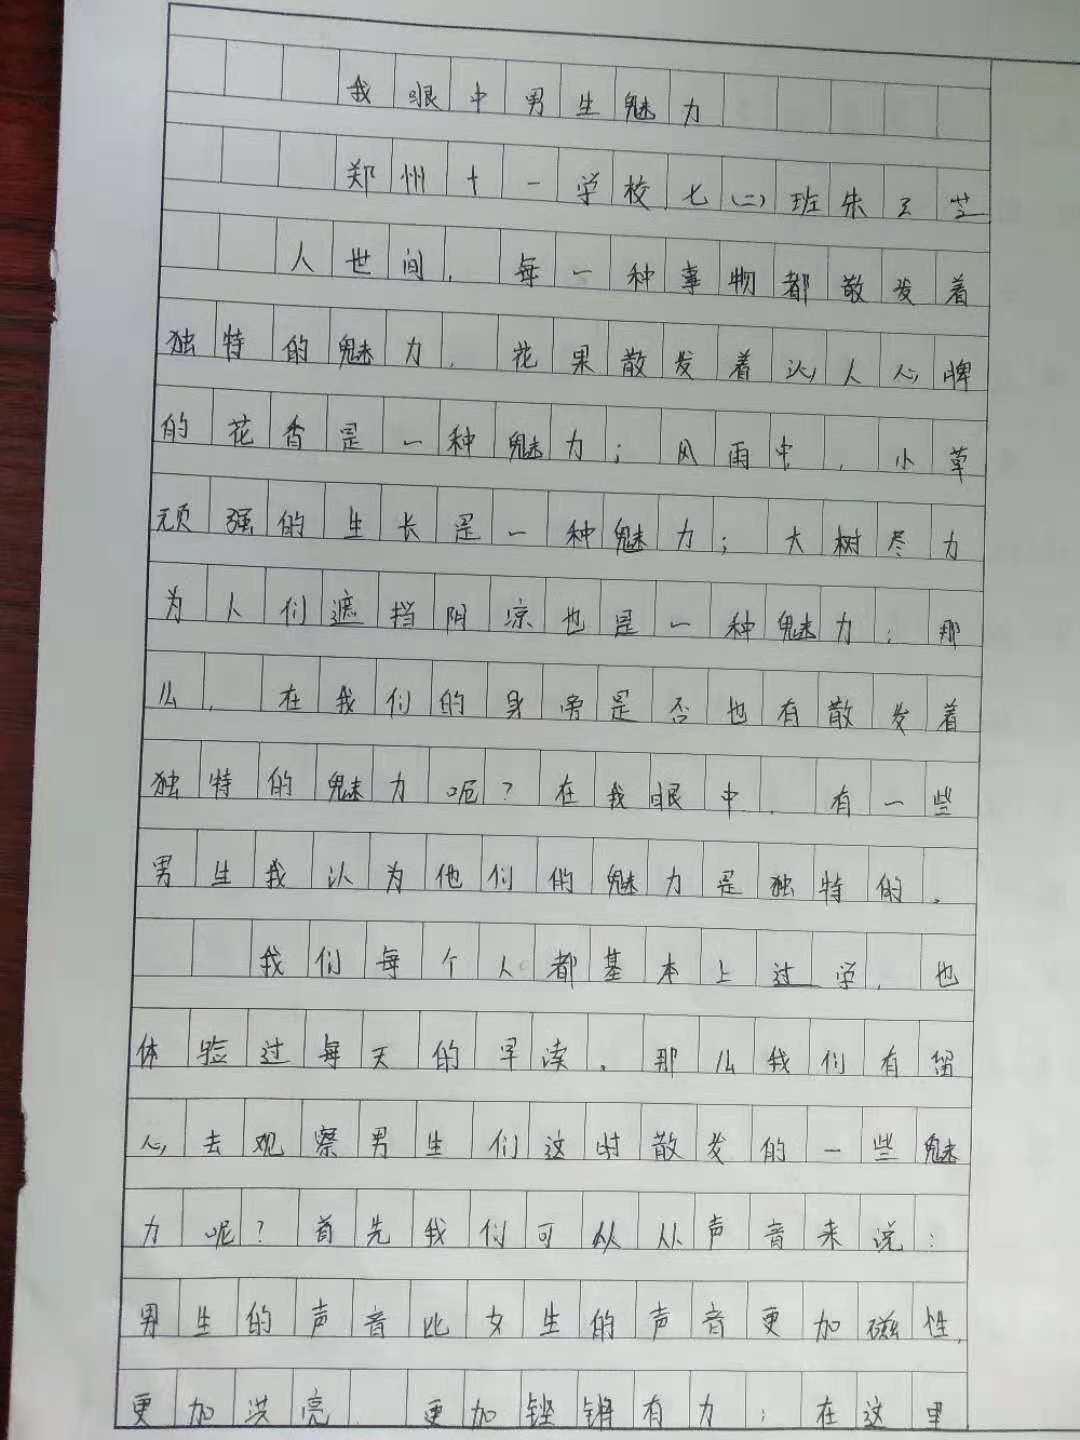 我眼中男生魅力
郑州十一学校七(二)班朱王芝
人世间，每一种事物都散发着
独特的魅力，花果散发着沁人心脾
的花香是一种魅力；风雨中，小草
顽强的生长是一种魅力；大树尽力
为人们遮挡阴凉也是一种魅力；那
么，在我们的身旁是否也有散发着
独特的魅力呢？在我眼中，有一些
男生我认为他们的魅力是独特的。
我们每个人都基本上过学，也
体验过每天的早读。那么我们有留
心去观察男生们这时散发的一些魅
力呢？首先我们可从从声音来说：
男生的声音比女生的声音更加磁性，
更加洪亮，更加铿锵有力；在这里